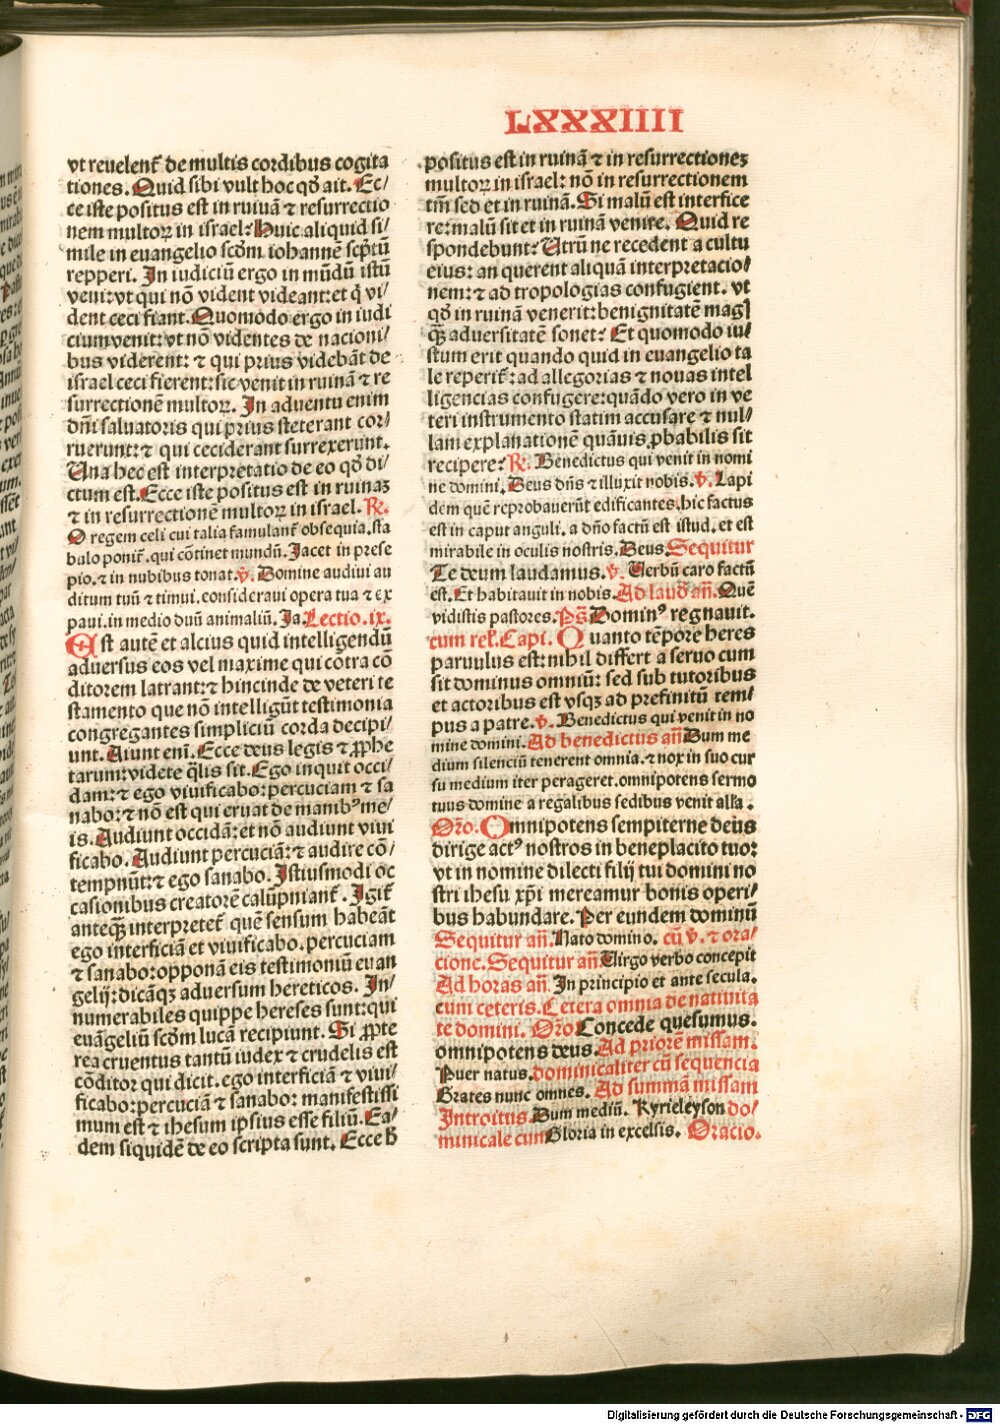 LXXXIIII
vt reuelent᷑ de multis cordibus cogita
tiones. Quid sibi vult hoc qđ ait. Ec/
ce iste positus est in ruiuā ⁊ resurrectio
nem multoꝝ in israel: Huic aliquid si/
mile in euangelio scđm iohannē scp̄tū
repperi. In iudiciū ergo in mūdū istū
veni: vt qui nō vident videant: et q̄ vi/
dent ceci fiant. Quomodo ergo in iudi
cium venit: vt nō videntes de nacioni/
bus viderent: ⁊ qui prius videbāt de
israel ceci fierent: sic venit in ruinā ⁊ re
surrectionē multoꝝ. In aduentu enim
dn̄i saluatoris qui prius steterant cor/
ruerunt: ⁊ qui ceciderant surrexerunt.
Una hec est interpretatio de eo qđ di/
ctum est. Ecce iste positus est in ruinaꝫ
⁊ in resurrectionē multoꝝ in israel. R̄.
O regem celi cui talia famulant᷑ obsequia. sta
bulo ponit᷑. qui cōtinet mundū. Jacet in prese
pio. ⁊ in nubibus tonat. v̄. Domine audiui au
ditum tuū ⁊ timui. consideraui opera tua ⁊ ex
paui. in medio duū animaliū. Ja. Lectio. ix.
Est autē et alcius quid intelligendū
aduersus eos vel maxime qui cōtra cō
ditorem latrant: ⁊ hincinde de veteri te
stamento que nō intelligūt testimonia
congregantes simpliciū corda decipi/
unt. Aiunt eni᷑. Ecce deus legis ⁊ ꝓphe
tarum: videte q̄lis sit. Ego inquit occi/
dam: ⁊ ego viuificabo: percuciam ⁊ sa
nabo: ⁊ nō est qui eruat de manibꝰ me/
is. Audiunt occidā: et nō audiunt viui
ficabo. Audiunt percuciā: ⁊ audire cō/
tempnūt: ⁊ ego sanabo. Istiusmodi oc
casionibus creatorē calūpniant᷑. Igit᷑
anteqꝫ interpretet᷑ quē sensum habeāt
ego interficiā et viuificabo. percuciam
⁊ sanabo: opponā eis testimoniū euan
gelij: dicāqꝫ aduersum hereticos. In/
numerabiles quippe hereses sunt: qui
euāgeliū scđm lucā recipiunt. Si ꝓpte
rea cruentus tantū iudex ⁊ crudelis est
cōditor qui dicit. ego interficiā ⁊ viui/
ficabo: percuciā ⁊ sanabo: manifestissi
mum est ⁊ ihesum ipsius esse filiū. Ea/
dem siquidē de eo scripta sunt. Ecce h̄
positus est in ruinā ⁊ in resurrectioneꝫ
multoꝝ in israel: nō in resurrectionem
tm̄ sed et in ruinā. Si malū est interfice
re: malū sit et in ruinā venire. Quid re
spondebunt: Utrū ne recedent a cultu
eius: an querent aliquā interpretacio/
nem: ⁊ ad tropologias confugient. vt
qđ in ruinā venerit: benignitatē magꝭ
qꝫ aduersitatē sonet: Et quomodo iu/
stum erit quando quid in euangelio ta
le reperit᷑: ad allegorias ⁊ nouas intel
ligencias confugere: quādo vero in ve
teri instrumento statim accusare ⁊ nul/
lam explanationē quāuis ꝓbabilis sit
recipere: R̄. Benedictus qui venit in nomi
ne domini. Deus dn̄s ⁊ illuxit nobis. v̄. Lapi
dem quē reprobauerūt edificantes. hic factus
est in caput anguli. a dn̄o factū est istud. et est
mirabile in oculis nostris. Deus. Sequitur
Te deum laudamus. v̄. Uerbū caro factū
est. Et habitauit in nobis. Ad laud̄ an̄. Quē
vidistis pastores. Ps̄ Dominꝰ regnauit.
cum rel᷑. Capi. Quanto tēpore heres
paruulus est: nihil differt a seruo cum
sit dominus omniū: sed sub tutoribus
et actoribus est vsqꝫ ad prefinitū tem/
pus a patre. v̄. Benedictus qui venit in no
mine domini. Ad benedictus an̄ Dum me
dium silenciū tenerent omnia. ⁊ nox in suo cur
su medium iter perageret. omnipotens sermo
tuus domine a regalibus sedibus venit all̄a.
Or̄o. Omnipotens sempiterne deus
dirige actꝰ nostros in beneplacito tuo:
vt in nomine dilecti filij tui domini no
stri ihesu xp̄i mereamur bonis operi/
bus habundare. Per eundem dominū
Sequitur an̄. Nato domino. cū v̄. ⁊ ora/
cione. Sequitur an̄ Uirgo verbo concepit
Ad horas an̄. In principio et ante secula.
cum ceteris. Cetera omnia de natiuita
te domini. Or̄o Concede quesumus.
omnipotens deus. Ad priorē missam.
Puer natus. dominicaliter cū sequencia
Grates nunc omnes. Ad summā missam
Introitus. Dum mediū. Kyrieleyson do/
minicale cum Gloria in excelsis. Oracio.
Digitalisierung gefördert durch die Deutsche Forschungsgemeinschaft - DFG